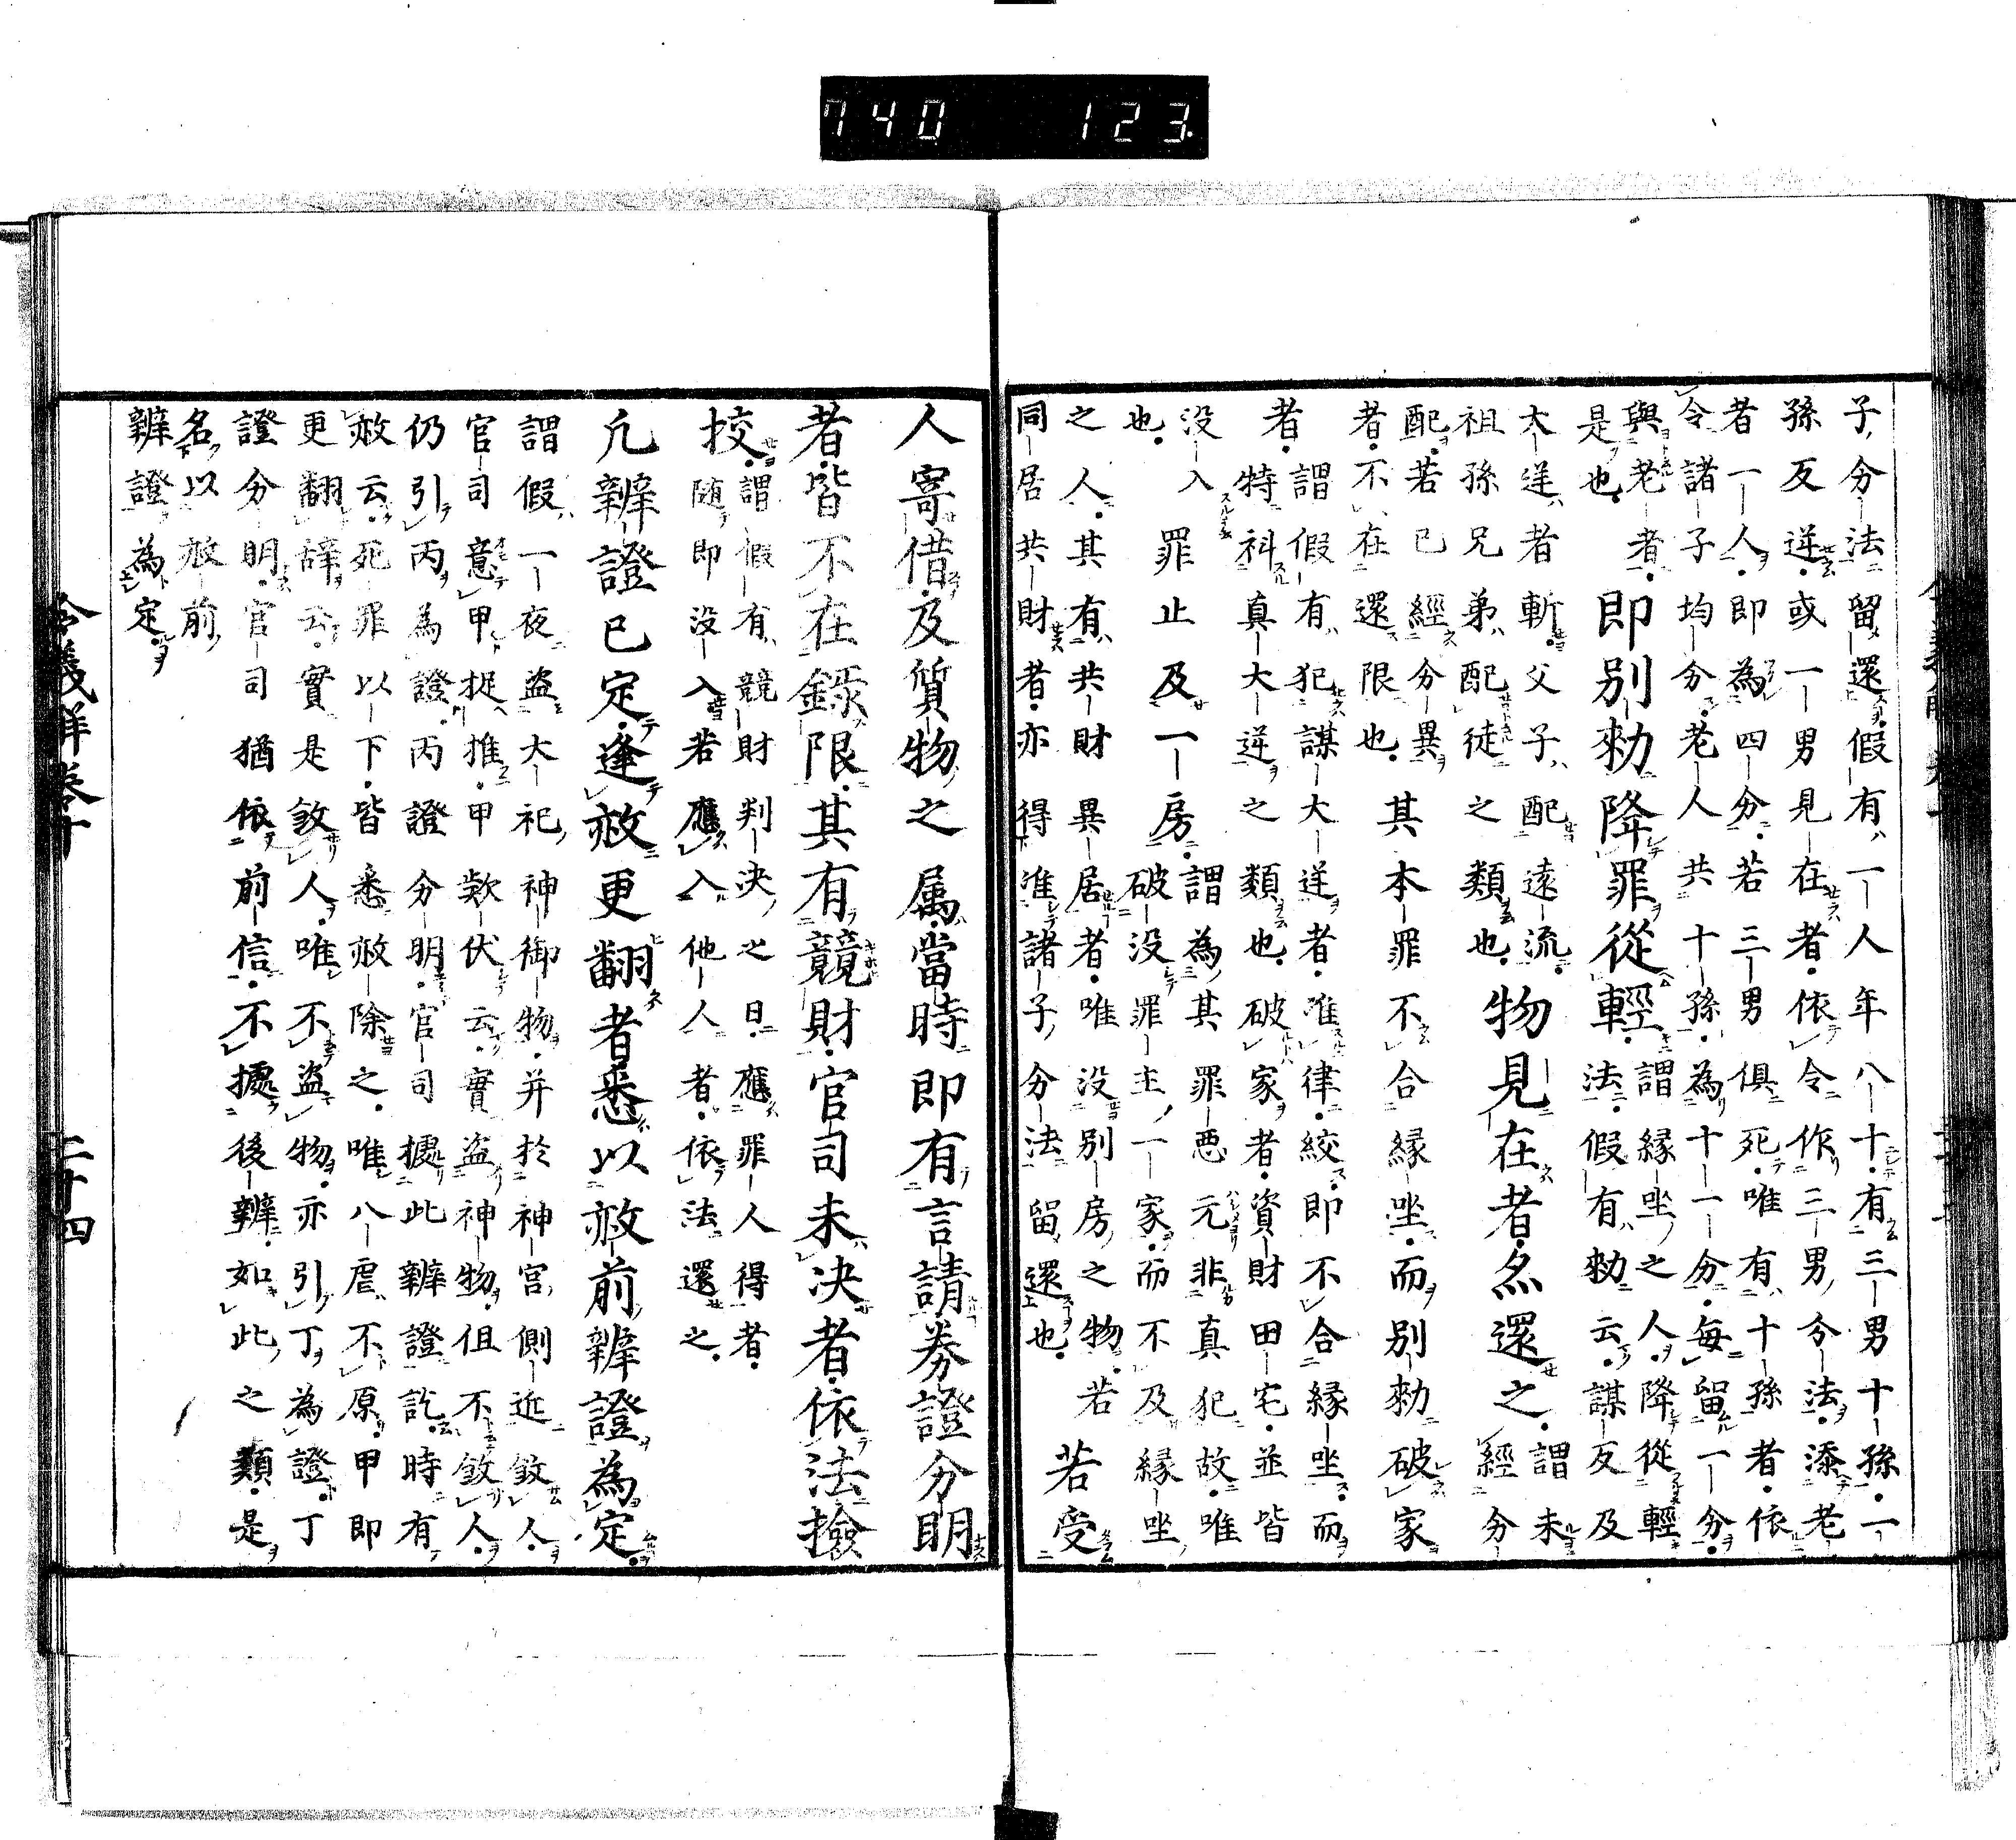 740 123
子分法留還假有一人年八十有三男十孫一
孫反逆或一男見在者依令作三男分法添老
者一人即為四分若三男俱死唯有十孫者依
令諸子均分老人共十孫為十一分每留一分
與老者
是也
即別勅降罪從輕
謂縁坐之人降從輕
法假有勅云謀反及
大逆者斬父子配遠流
祖孫兄弟配徒之類也
物見在者亦還之
謂未
經分
配若已經分異
者不在還限也
其本罪不合縁坐而別勅破家
者
謂假有犯謀大逆者准律絞即不合縁坐而
特科真大逆之類也破家者資財田宅並皆
没入
也
罪止及一房
謂為其罪悪元非真犯故唯
破没罪主一家而不及縁坐
之人其有共財異居者唯没別房之物若
同居共財者亦得准諸子分法留還也
若受
人寄借及質物之属當時即有言請券證分明
者皆不在録限其有競財官司未决者依法撿
挍
謂假有競財判决之日應罪人得者
随即没入若應入他人者依法還之
凢辨證已定逢赦更翻者悉以赦前辨證為定
謂假一夜盗大祀神御物并於神宮側近敓人
官司意甲捉推甲欵伏云實盗神物但不敓人
仍引丙為證丙證分明官司據此辨證訖時有
赦云死罪以下皆悉赦除之唯八虐不原甲即
更翻辞云實是敓人唯不盗物亦引丁為證丁
證分明官司猶依前信不據後辨如此之類是
名以赦前
辨證為定
令義解 巻十 二十四